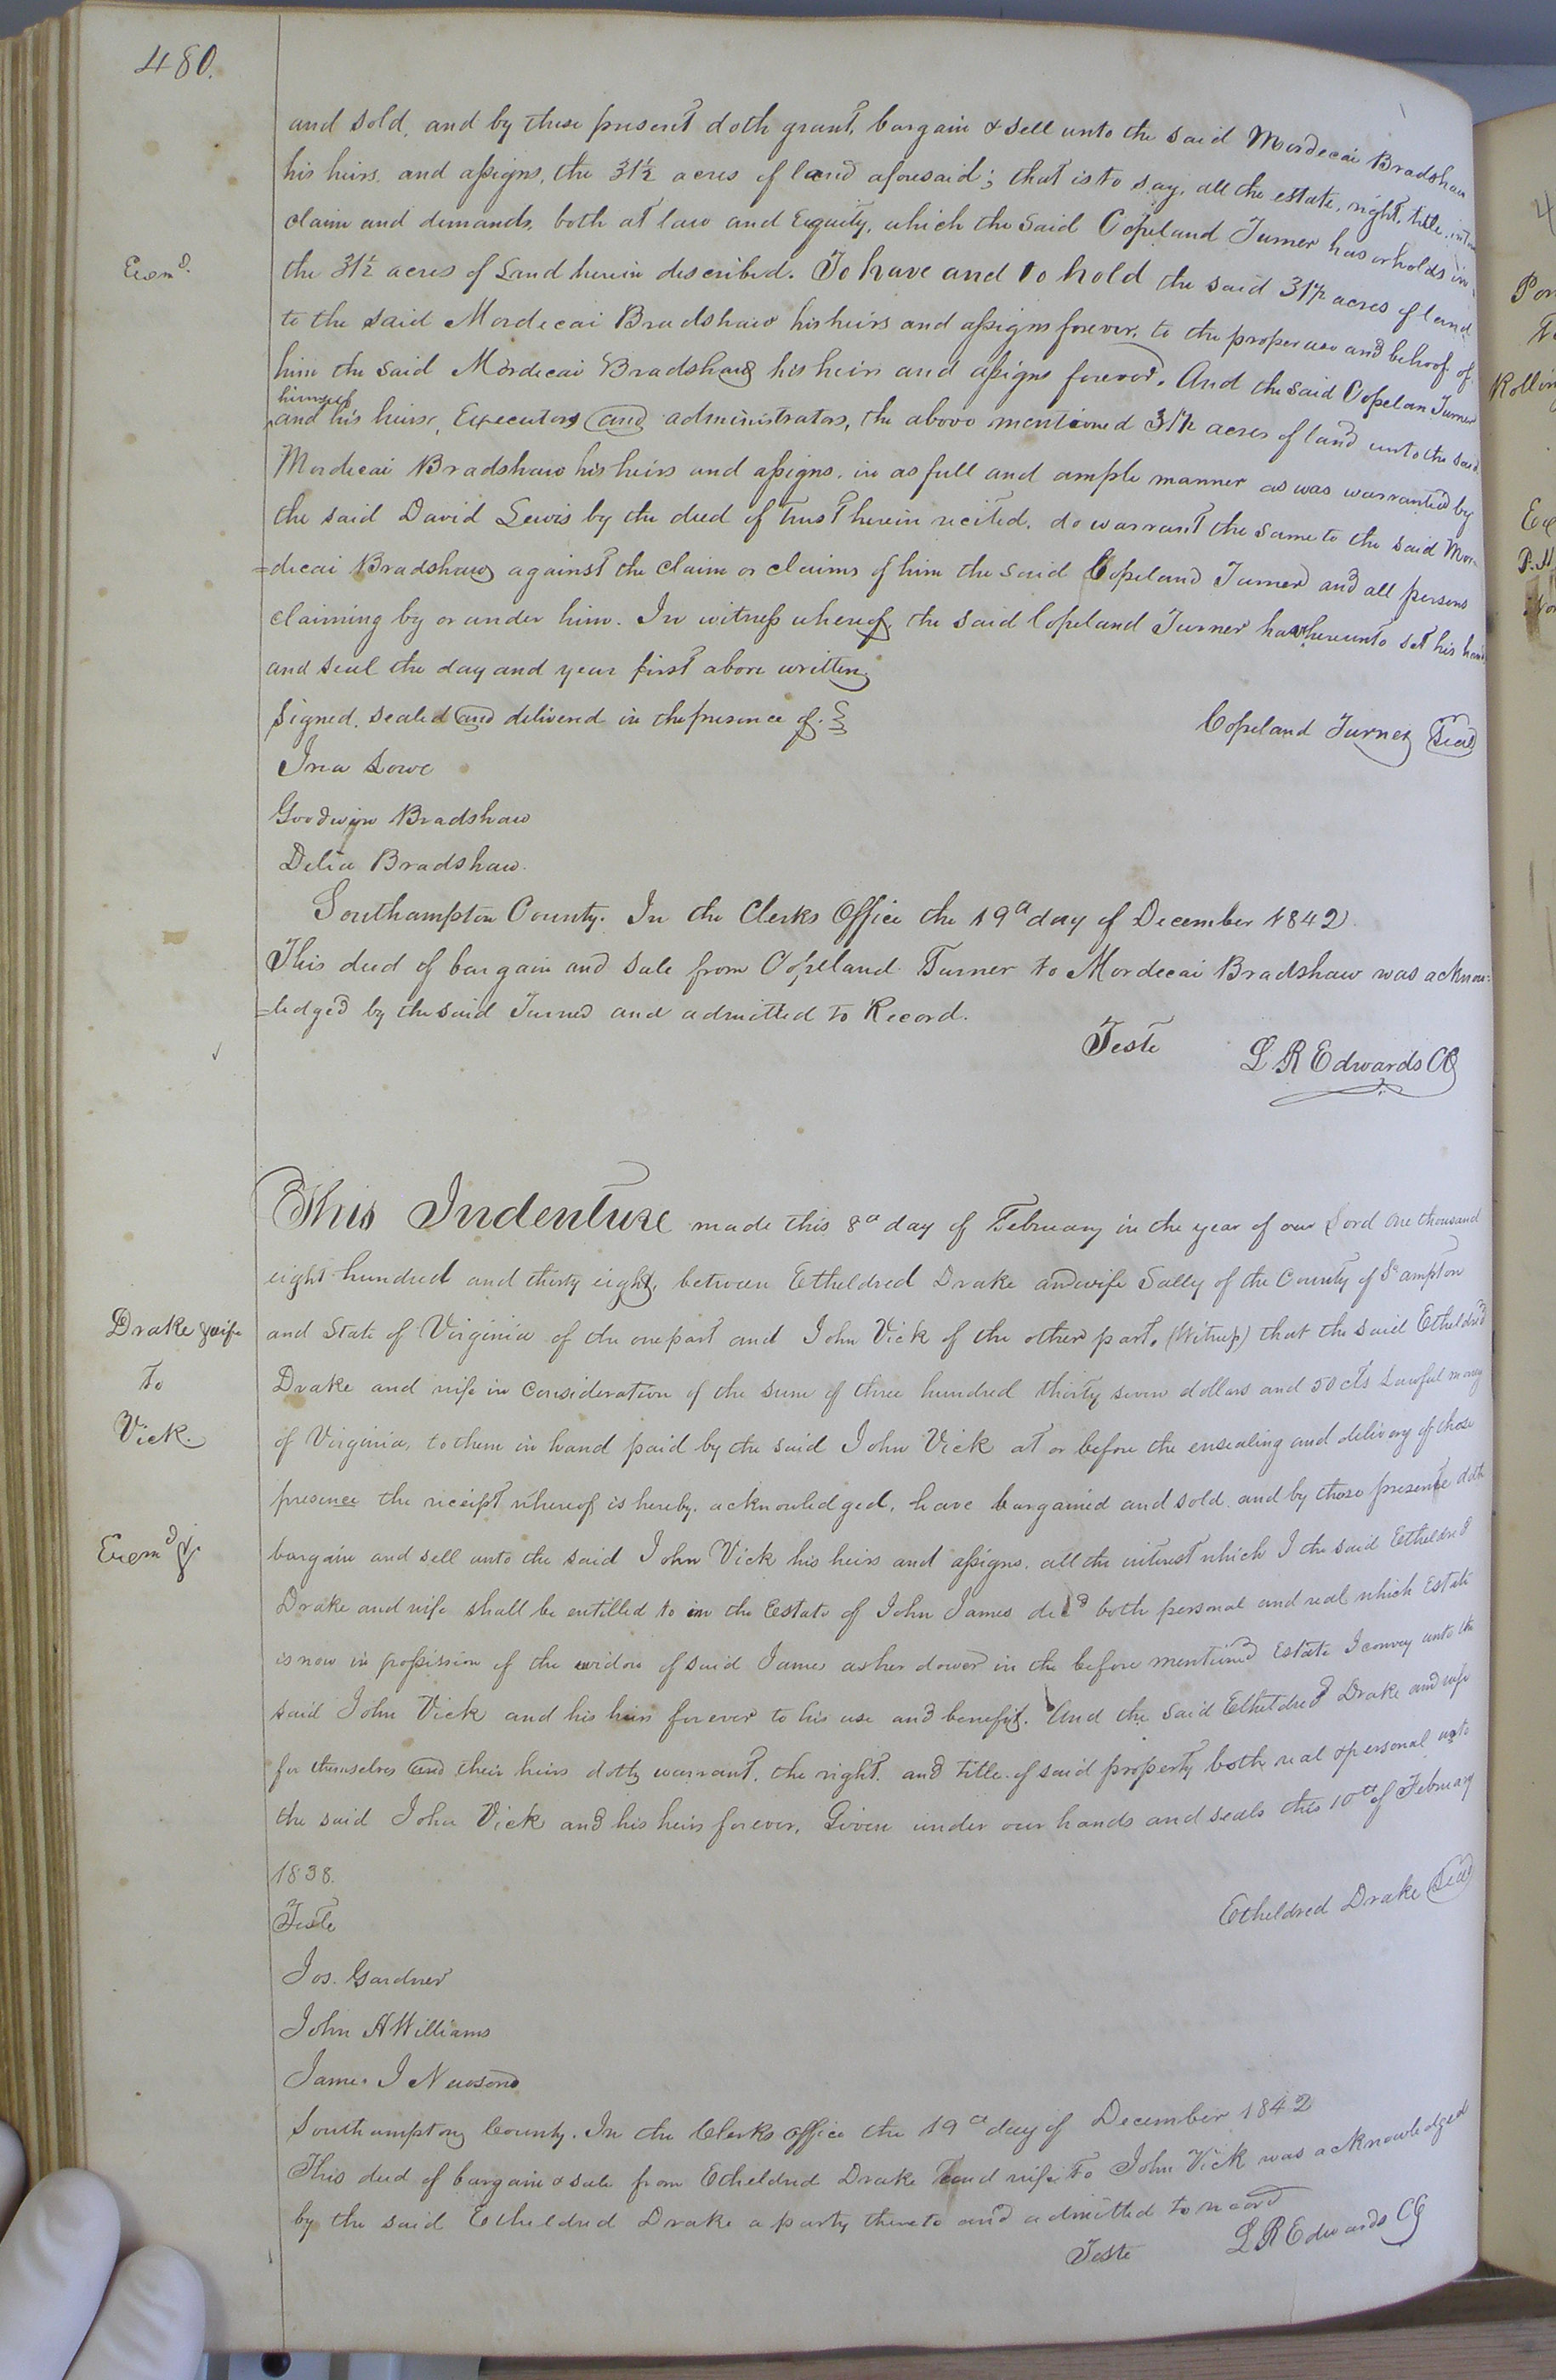 480.
and sold, and by these present doth grant, bargain & sell unto the said Mordecai Bradshaw
his heirs, and assigns, the 31½ acres of land aforesaid; that is to say, all the estate, right, title,
claim and demands, both at law and Equity, which the said Copeland Turner has or holds in
Exem^d.
the 31½ acres of Land herein described. To have and to hold the said 31½ acres of land
to the said Mordecai Bradshaw his heirs and assigns forever, to the proper use and behoof of
him the said Mordecai Bradshaw his heirs and assigns forever. And the said Copelan Turner
himself
and his heirs, Executors and administrators, the above mentioned 31½ acres of land unto the said
Mordecai Bradshaw his heirs and assigns, in as full and ample manner as was warranted by
the said David Lewis by the deed of trust herein recited, do warrant the same to the said Mor-
=decai Bradshaw against the claim or claims of him the said Copeland Turner and all persons
claiming by or under him. In witness whereof, the said Copeland Turner has hereunto set his hand
and seal the day and year first above written
Signed, sealed and delivered in the presence of.
Copeland Turner Seal
Goodwyn Bradshaw
Delia Bradshaw.
Southampton County. In the Clerks Office the 19^a day of December 1842.
This deed of bargain and sale from Copeland Turner to Mordecai Bradshaw was acknow=
=ledged by the said Turner and admitted to Record.
Teste L R Edwards CC
This Indenture made this 8^a day of February in the year of our Lord One thousand
eight hundred and thirty eight, between Etheldred Drake and wife Sally of the County of S^oampton
Drake & wife
to
Vick.
and State of Virginia of the one part and John Vick of the other part. (Witness) that the said Etheldred
Drake and wife in Consideration of the sum of three hundred thirty seven dollars and 50 cts Lawful money
of Virginia, to them in hand paid by the said John Vick at or before the ensealing and delivery of these
presence the receipt whereof is hereby acknowledged, have bargained and sold and by these presente doth
Exem^d
bargain and sell unto the said John Vick his heirs and assigns, all the interest which I the said Etheldred
Drake and wife shall be entitled to in the Estate of John James dec^d both personal and real which Estate
is now in possission of the widow of said James as her dower in the before mentioned Estate I convey unto the
said John Vick and his heirs forever to his use and benefit. And the said Etheldred Drake and wife
for themselves and their heirs doth warrant, the right, and title of said property both real & personal unto
the said John Vick and his heirs forever. Given under our hands and seals this 10^th of February
1838.
Etheldred Drake Seal
Teste
Jos. Gardner
John A Williams
James J Newsom
Southampton County. In the Clerks office the 19^a day of December 1842
This deed of bargain & sale from Etheldred Drake and wife to John Vick was acknowledged
by the said Etheldred Drake a party thereto and admitted to record
Teste L R Edwards CC